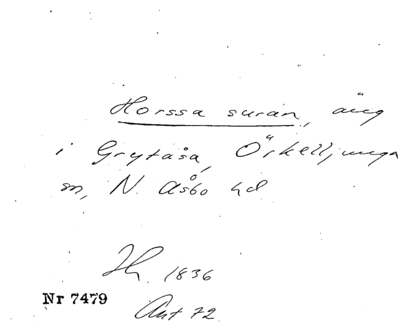 Horssa suran, äng
i Grytåsa, Örkelljunga
sn, N. Åsbo hd
Jh. 1836
Nr 7479
Akt 72